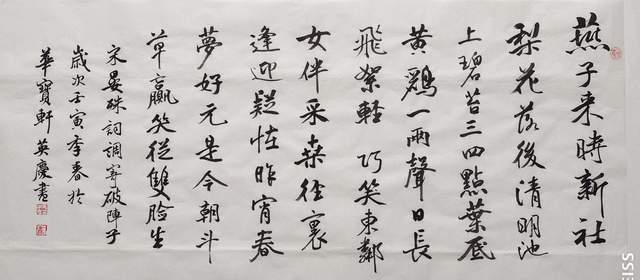 燕子来時新社
梨花落後清明池
上碧苔三四點葉底
黄鸝一兩聲日長
飛絮輕 巧笑東鄰
女伴采桑径裏
逢迎疑怪昨宵春
夢好元是今朝斗
草贏笑從雙脸生
宋晏殊詞調寄破陣子
歲次壬寅季春於
華寶軒 英慶書
EISS